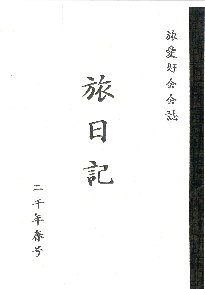 旅愛好会会誌
旅日記
二千年春号